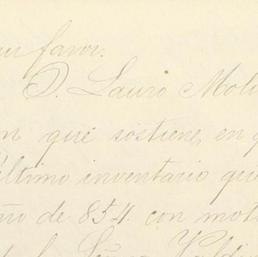 su favor.
D. Lauro Moli
que sostiene, en
último inventario que
año de 854. con mot